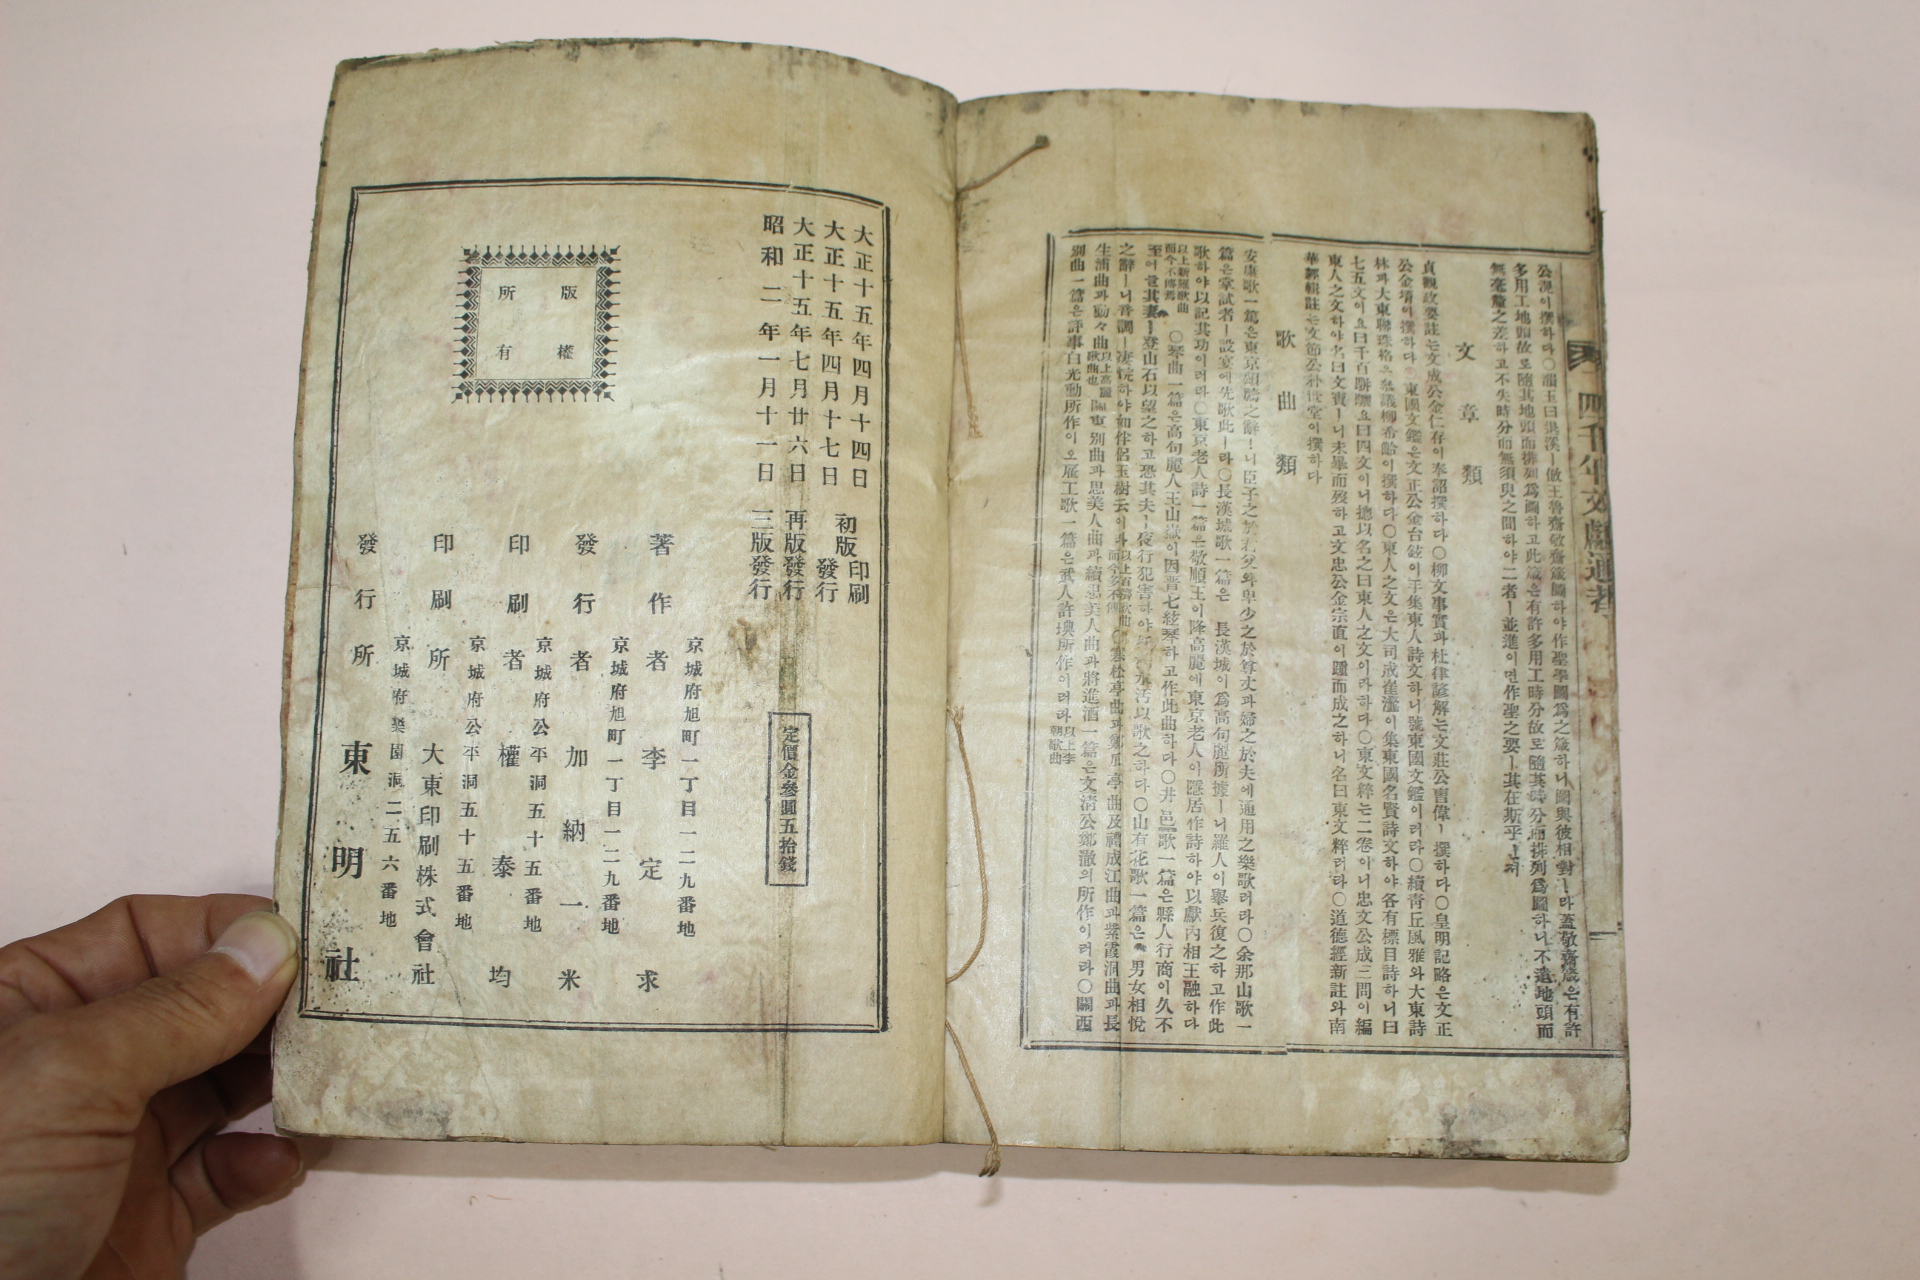 四千年文獻通考
公滉이撰하다○韻玉曰退溪ㅣ倣王魯齋敬齋箴圖하야作聖學圖爲之箴하니圖與彼相對ㅣ라蓋敬齋箴은有許
多用工地頭故로隨其地頭而排列爲圖하고此箴은有許多用工時分故로隨其時分而排列爲圖하니不遺地頭而
無毫釐之差하고不失時分而無須臾之間하야二者ㅣ並進이면作聖之要ㅣ其在斯乎ㅣㄴ저
文章類
貞觀政要註는文成公金仁存이奉詔撰하다○柳文事實과杜律諺解는文莊公曺偉ㅣ撰하다○皇明記略은文正
公金堉이撰하다 東國文鑑은文正公金台鉉이于集東人詩文하니號東國文鑑이러라○續靑丘風雅와大東詩
林과大東聯珠格은 議柳希齡이撰하다○東人之文은大司成崔瀣이集東國名賢詩文하야各有標目詩하니曰
七五文이오曰千百騈驪오曰四文이니摠以名之曰東人之文이라하다○東文粹는二卷이니忠文公成三問이編
東人之文하야名曰文寶ㅣ니未畢而歿하고文忠公金宗直이踵而成之하니名曰東文粹러라○道德經新註와南
華經輯註는文節公朴世堂이撰하다
歌曲類
安康歌一篇은東京頌禱之辭ㅣ니臣子之於君父와卑少之於尊丈과婦之於夫에通用之樂歌러라○余那山歌一
篇은掌試者ㅣ設宴에先歌此ㅣ라○長漢城歌一篇은 長漢城이爲高句麗所據ㅣ니羅人이擧兵復之하고作此
歌하야以記其功이러라○東京老人詩一篇은敬順王이降高麗에東京老人이隱居作詩하야以獻內相王融하다
以上新羅歌曲而今不傳焉 ○琴曲一篇은高句麗人王山嶽이因晋七絃琴하고作此曲하다○井邑歌一篇은縣人行商이久不
至어늘其妻ㅣ登山石以望之하고恐其夫ㅣ夜行犯害하야 水汚以歌之하다○山有花歌一篇은 男女相悅
之辭ㅣ니音調ㅣ凄惋하야如伴侶玉樹云이라以上百濟歌曲而今多不傳○寒松亭曲과鄭瓜亭曲及禮成江曲과紫霞洞曲과長
生浦曲과動々曲以上高麗歌曲也 關東別曲과思美人曲과續思美人曲과將進酒一篇은文淸公鄭澈의所作이러라○關西
別曲一篇은評事白光勳所作이오雇工歌一篇은武人許㙉所作이러라以上李朝歌曲
大正十五年四月十四日 初版印刷
大正十五年四月十七日 發行
大正十五年七月廿六日 再版發行
昭和二年一月十一日 三版發行
版權
所有
定價金參圓五拾錢
京城府旭町一丁目一二九番地
著作者 李定求
京城府旭町一丁目一二九番地
發行者 加納一米
京城府公平洞五十五番地
印刷者 權泰均
京城府公平洞五十五番地
印刷所 大東印刷株式會社
京城府樂園洞二五六番地
發行所 東明社